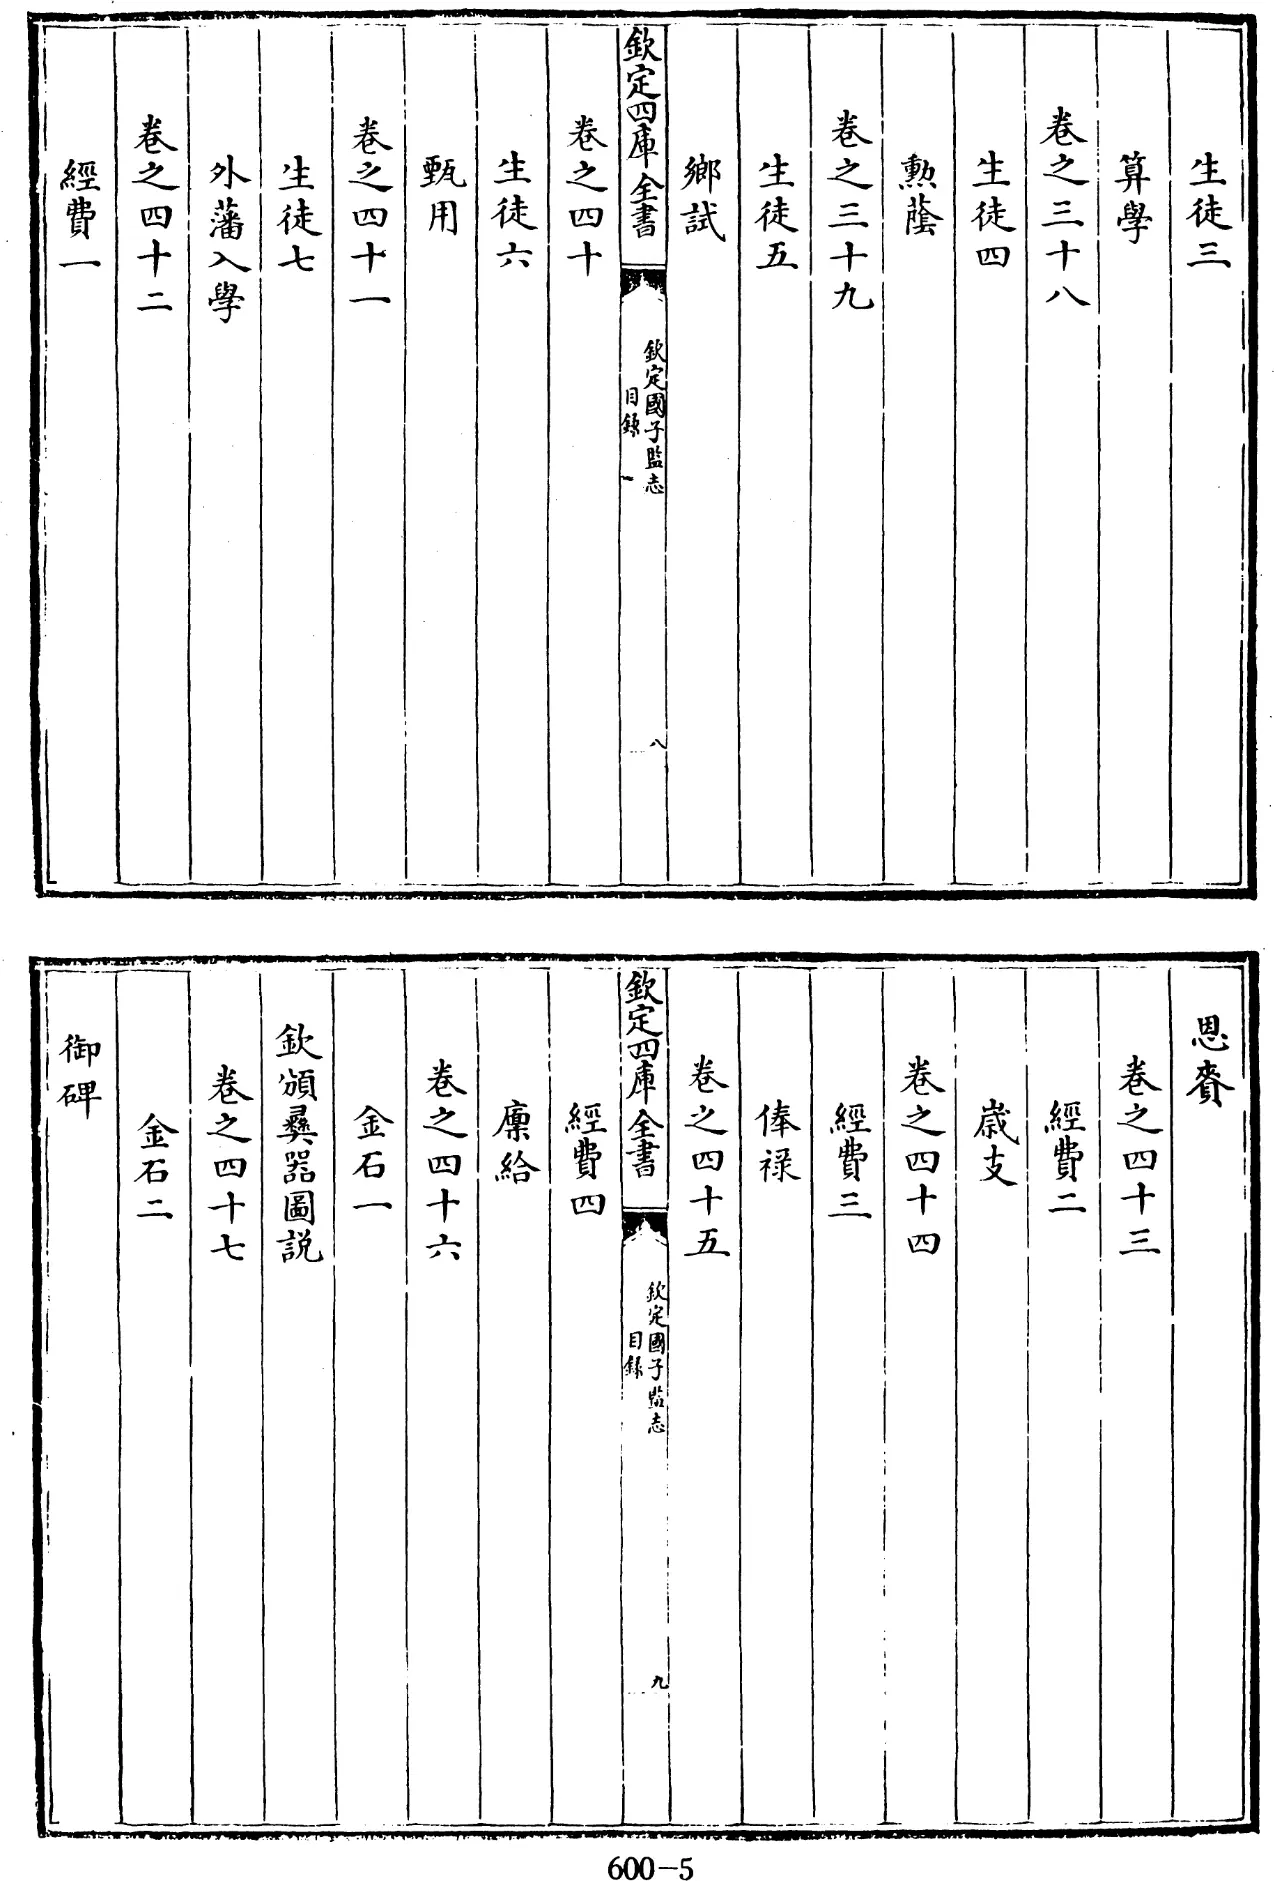 生徒三
算學
卷之三十八
生徒四
勲蔭
卷之三十九
生徒五
鄉試
欽定四庫全書
欽定國子監志
目錄一
八
卷之四十
生徒六
甄用
卷之四十一
生徒七
外藩入學
卷之四十二
經費一
恩賚
卷之四十三
經費二
歲支
卷之四十四
經費三
俸祿
卷之四十五
欽定四庫全書
欽定國子監志
目錄
九
經費四
廩給
卷之四十六
金石一
欽頒彝器圖説
卷之四十七
金石二
御碑
600-5